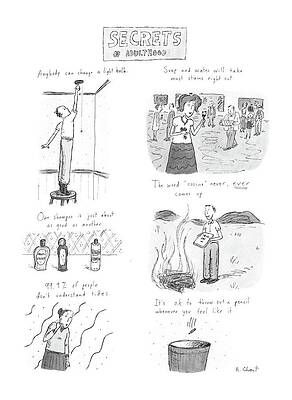 SECRETS
OF ADULTHOOD
Anybody can change a light bulb.
Soap and water will take
most stains right out.
One shampoo is just about
as good as another.
The word "cosine" never, ever
comes up.
99.9% of people
don't understand tides.
It's o.k. to throw out a pencil
whenever you feel like it.
R. Chast